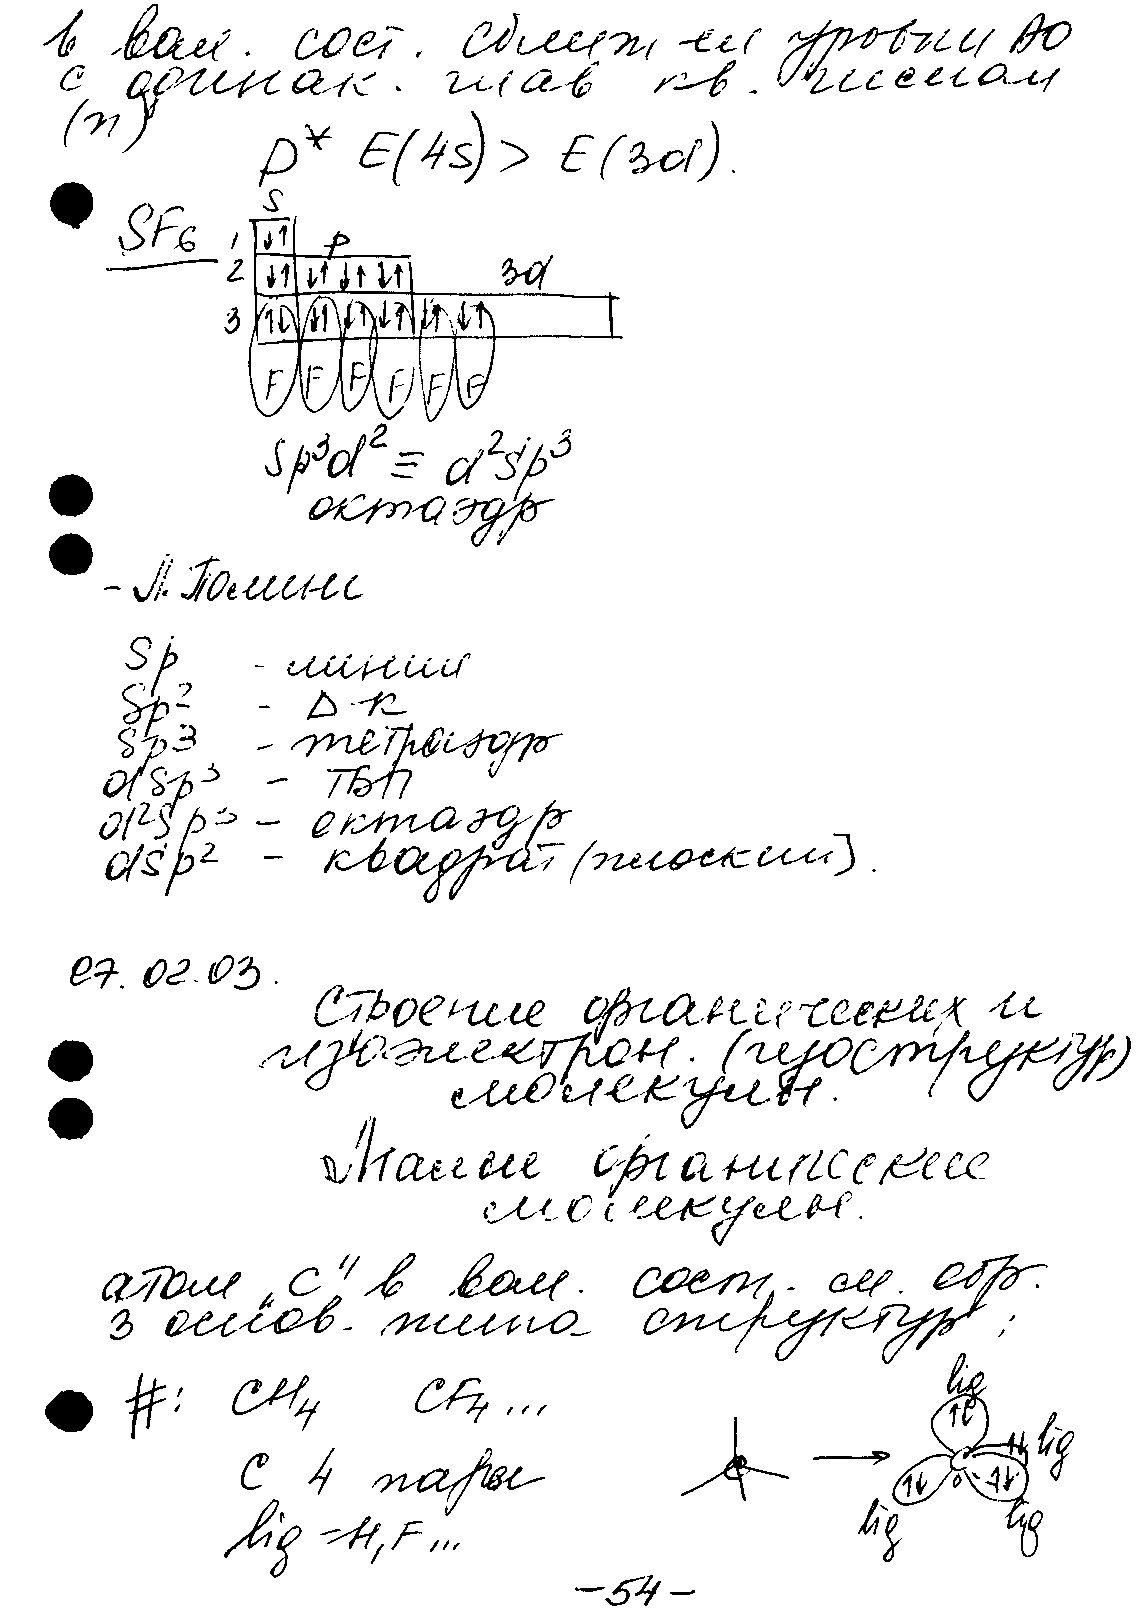 в вал. сост. сближ-ся уровни АО
с одинак. глав кв. числом
(n)
p* E(4s) > E(3d).
SF6
s
1 ↓↑ p
2 ↓↑ ↓↑ ↓↑ ↓↑ 3d
3 ↑↓ ↓↑ ↓↑ ↓↑ ↓↑ ↓↑
F F F F F F
sp³d² ≡ d²sp³
октаэдр
- Л. Полинг
sp - линия
sp² - Δ-к
sp³ - тетраэдр
dsp³ - ТБП
d²sp³ - октаэдр
dsp² - квадрат (плоский).
07.02.03.
Строение органических и
изоэлектрон. (изоструктур)
молекулы.
Малые органические
молекулы.
атом „С" в вал. сост. см. обр.
3 основ. типа структур:
#: CH4 CF4...
С 4 пары
lig = H, F...
C
lig
↑↓
↑↓ lig
↑↓ ↑↓
lig lig
-54-